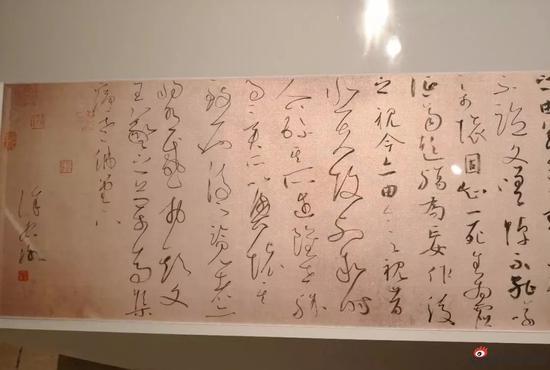 不臨文嗟悼不能喻
之於懷固知一死生為虛
誕齊彭殤為妄作後
之視今亦由今之視昔
悲夫故列敘時
人錄其所述雖世殊
事異所以興懷其
致一也後之覽者亦
將有感於斯文
王羲之蘭亭集